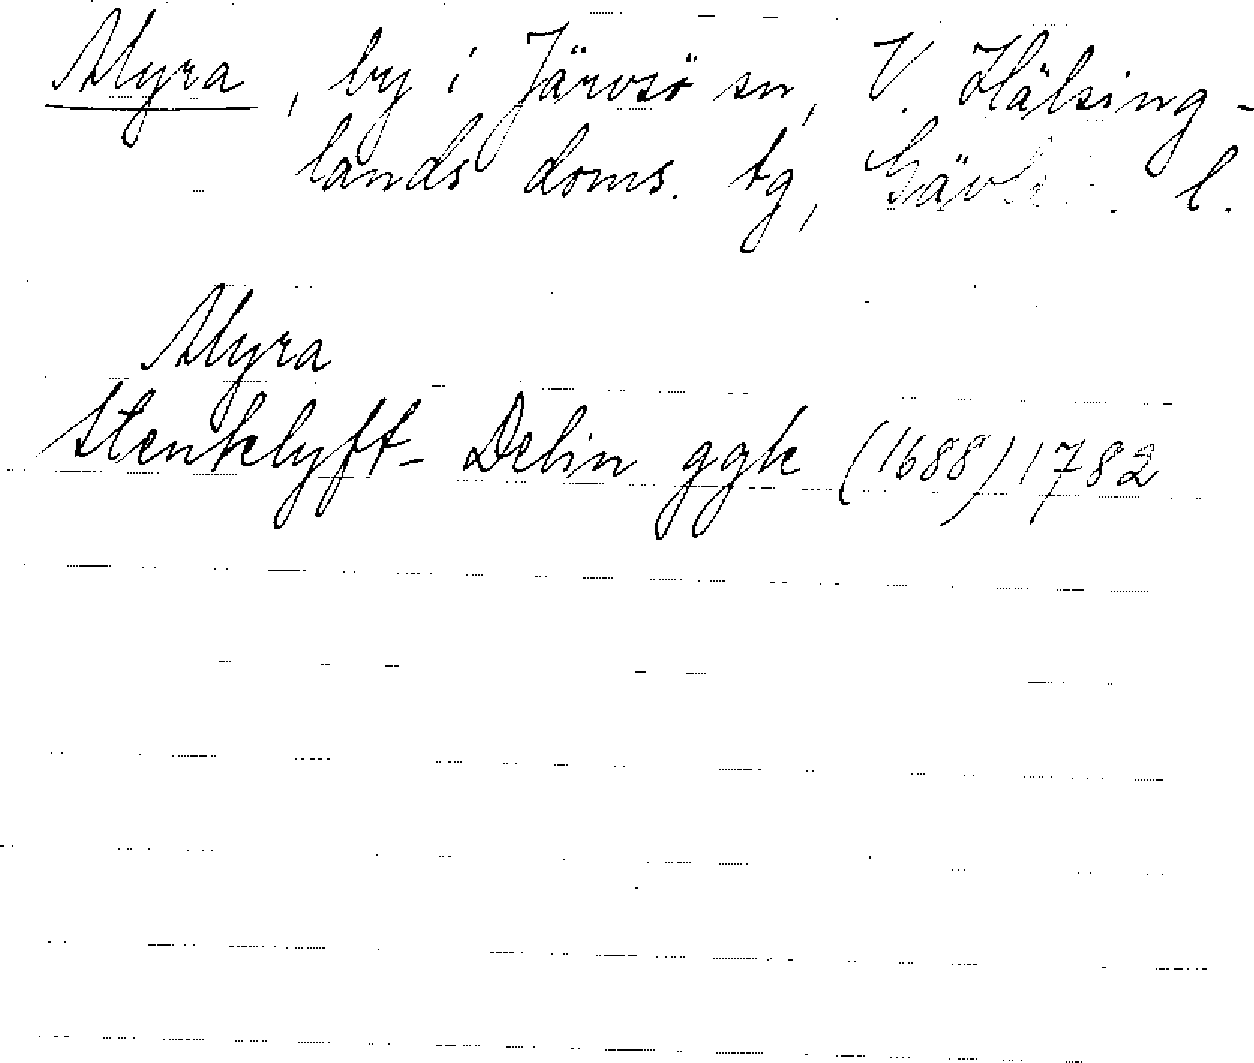 Myra, by i Järvsö sn, V. Hälsing-
lands doms. tg, Gävle. l.
Myra
Stenklyft- Delin ggk (1688) 1782